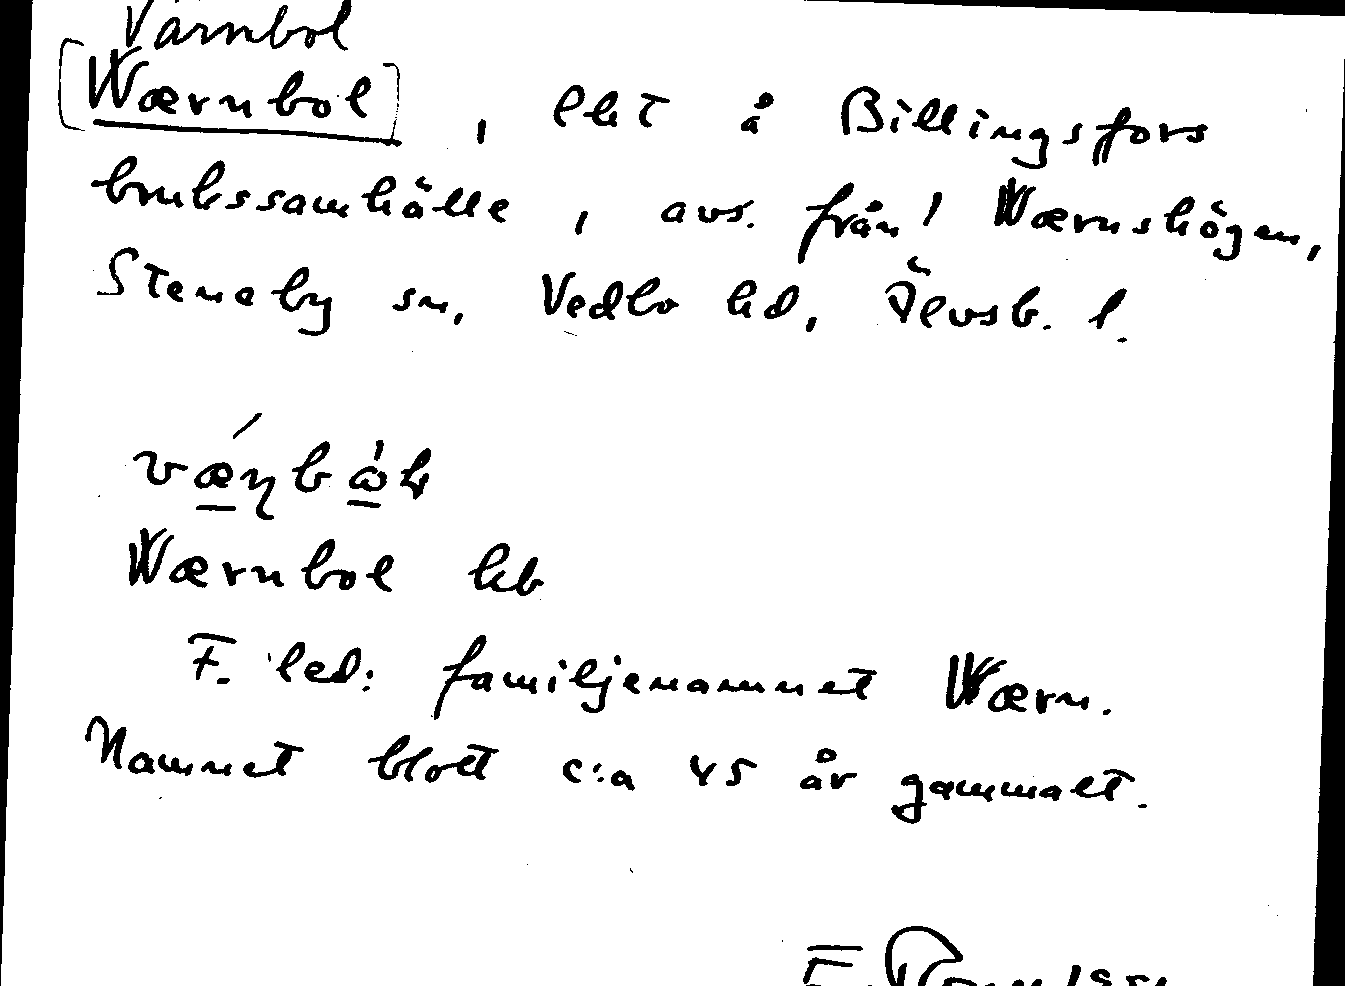 Värnbol
[Wærnbol], lht å Billingsfors
brukssamhälle, avs. från! Wærnshögen,
Steneby sn, Vedbo hd, Älvsb. l.
Wærnbol hb
F. led: familjenamnet Wærn.
Namnet blott c:a 45 år gammalt.